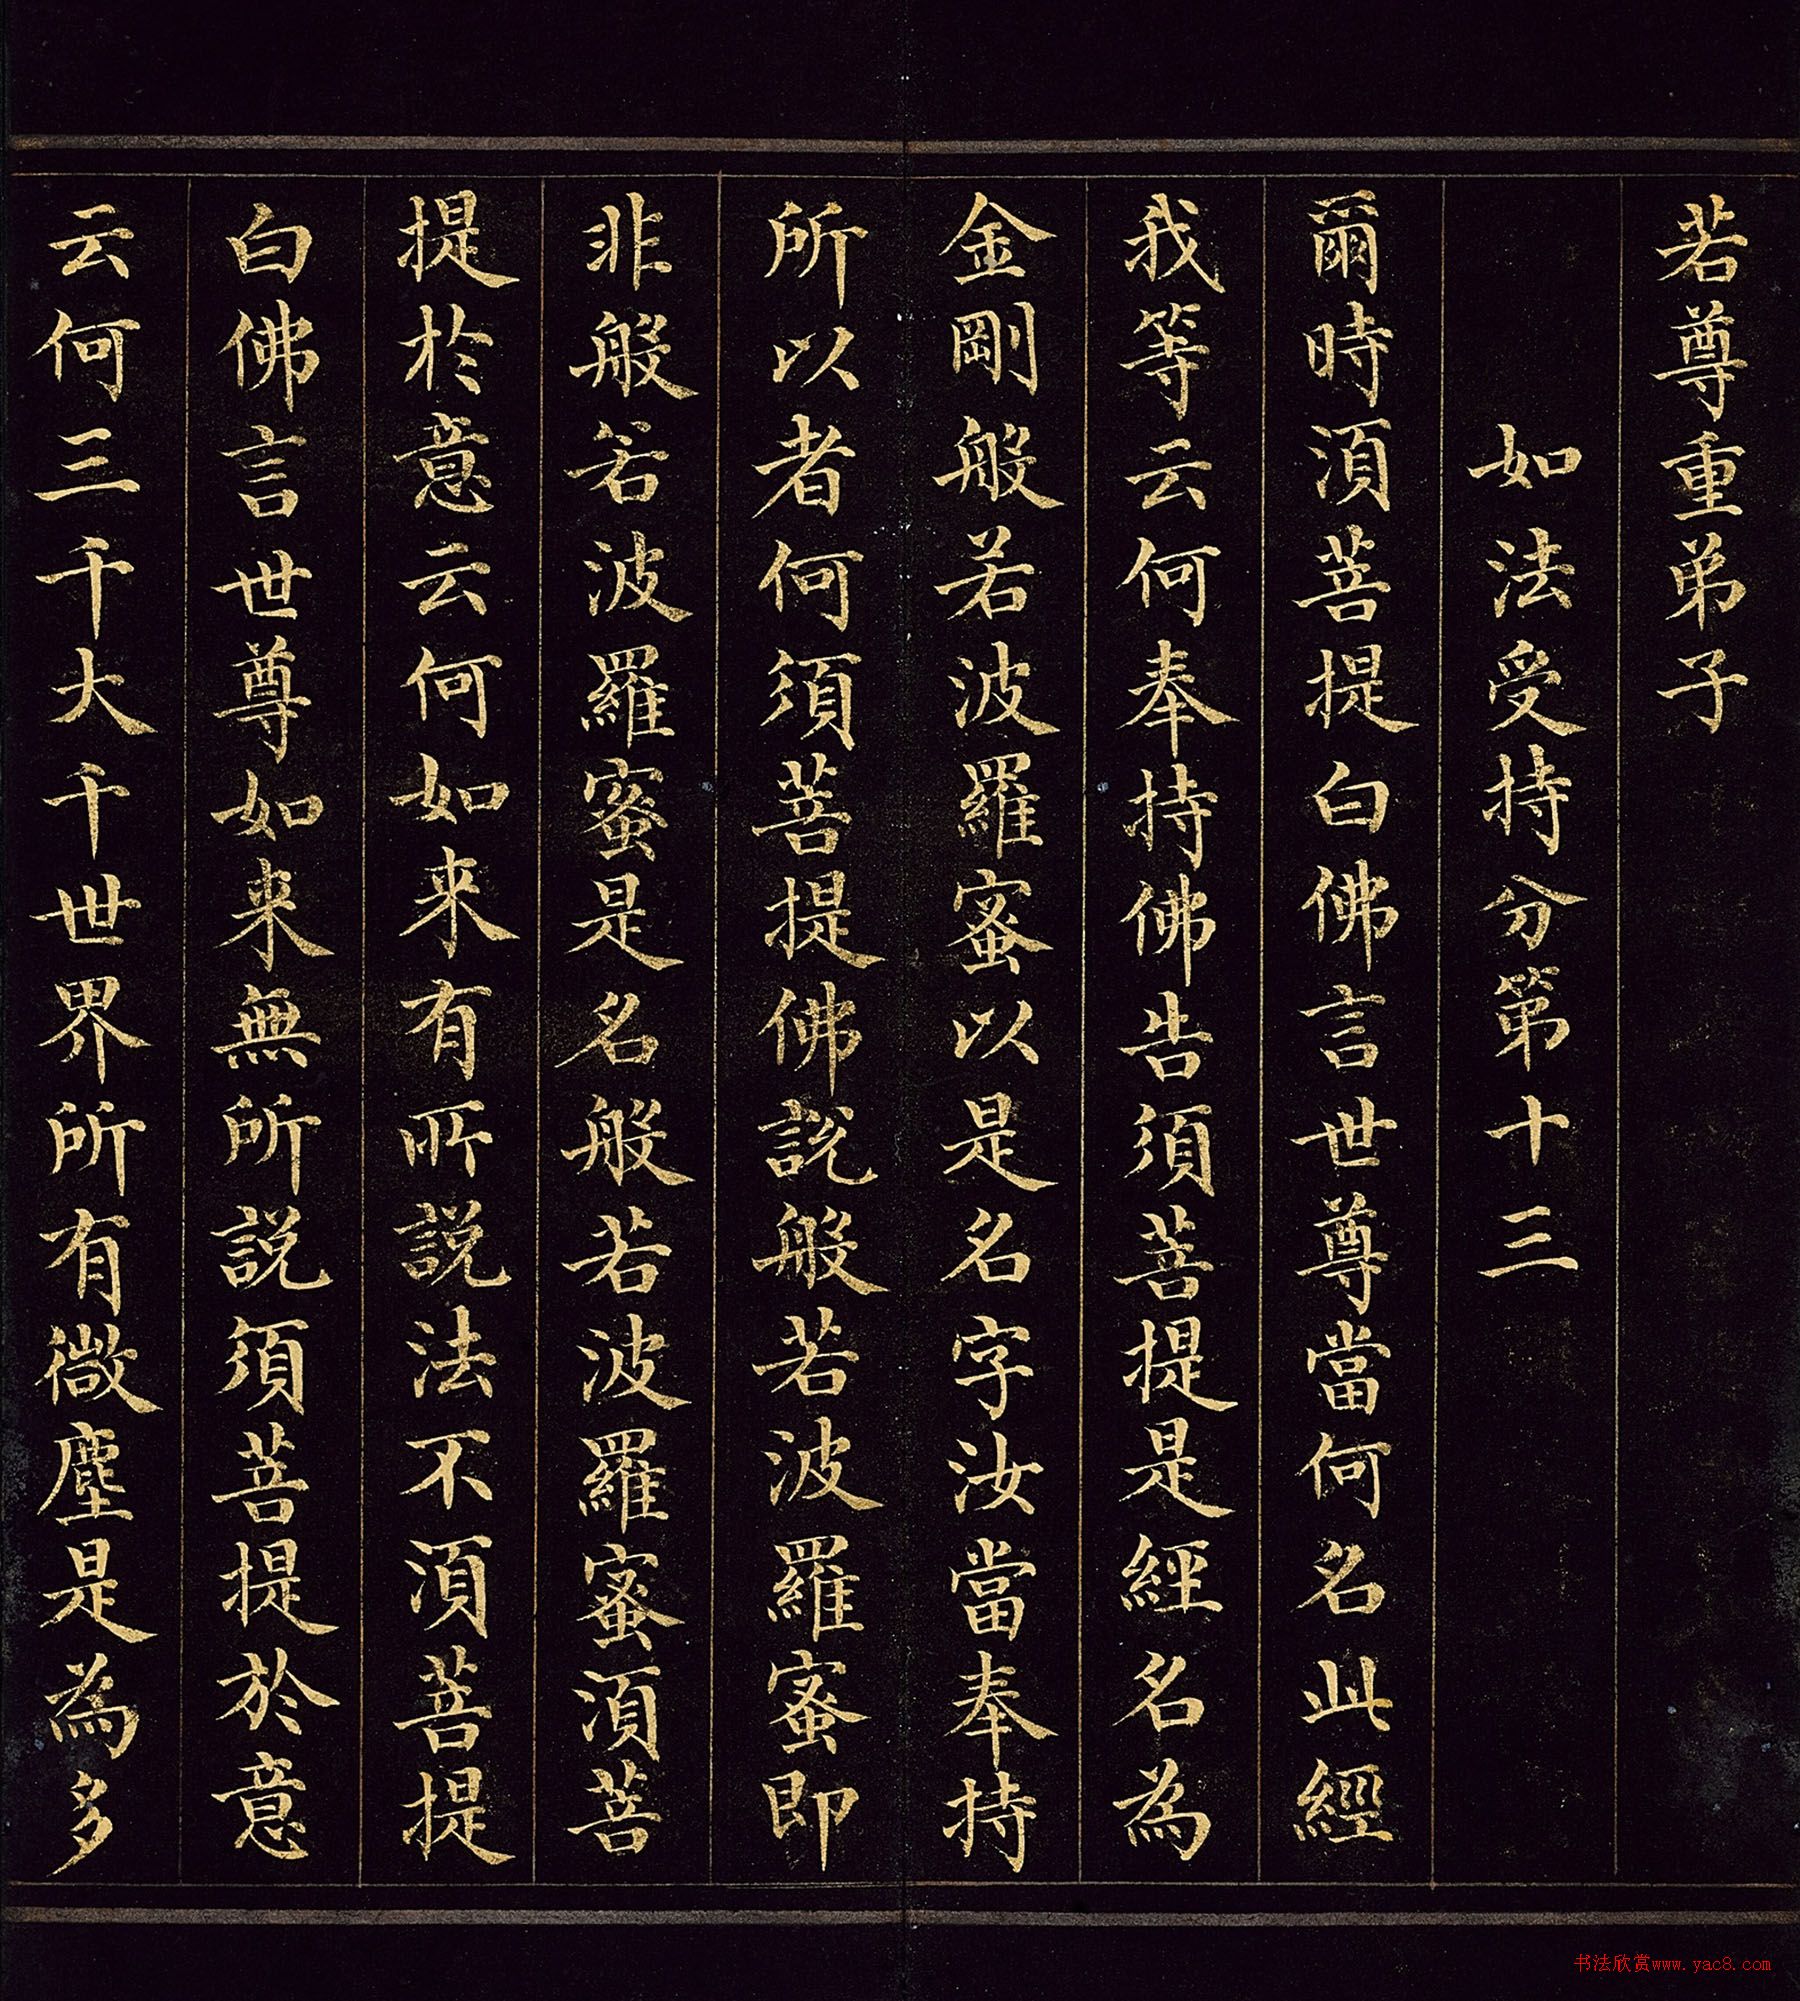 若尊重弟子
如法受持分第十三
爾時湏菩提白佛言世尊當何名此經
我等云何奉持佛告須菩提是經名為
金剛般若波羅蜜以是名字汝當奉持
所以者何須菩提佛說般若波羅蜜即
非般若波羅蜜是名般若波羅蜜湏菩
提於意云何如来有所說法不湏菩提
白佛言世尊如来無所說須菩提於意
云何三千大千世界所有微塵是為多
书法欣赏www.yac8.com